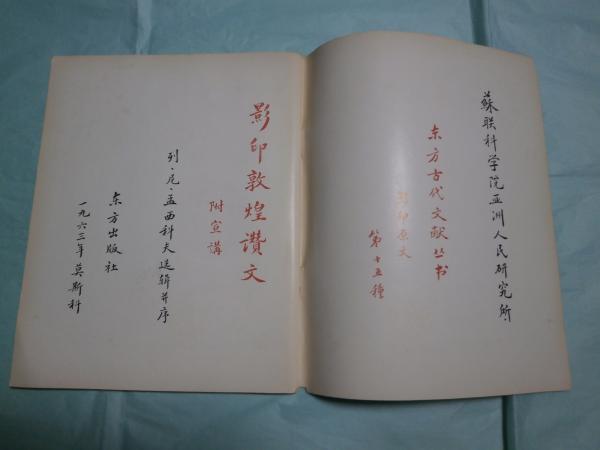 蘇联科学院亚洲人民研究所
东方古代文献丛书
影印原文
第十五種
影印敦煌讚文
附宣講
列·尼·孟西科夫选辑并序
东方出版社
一九六三年莫斯科